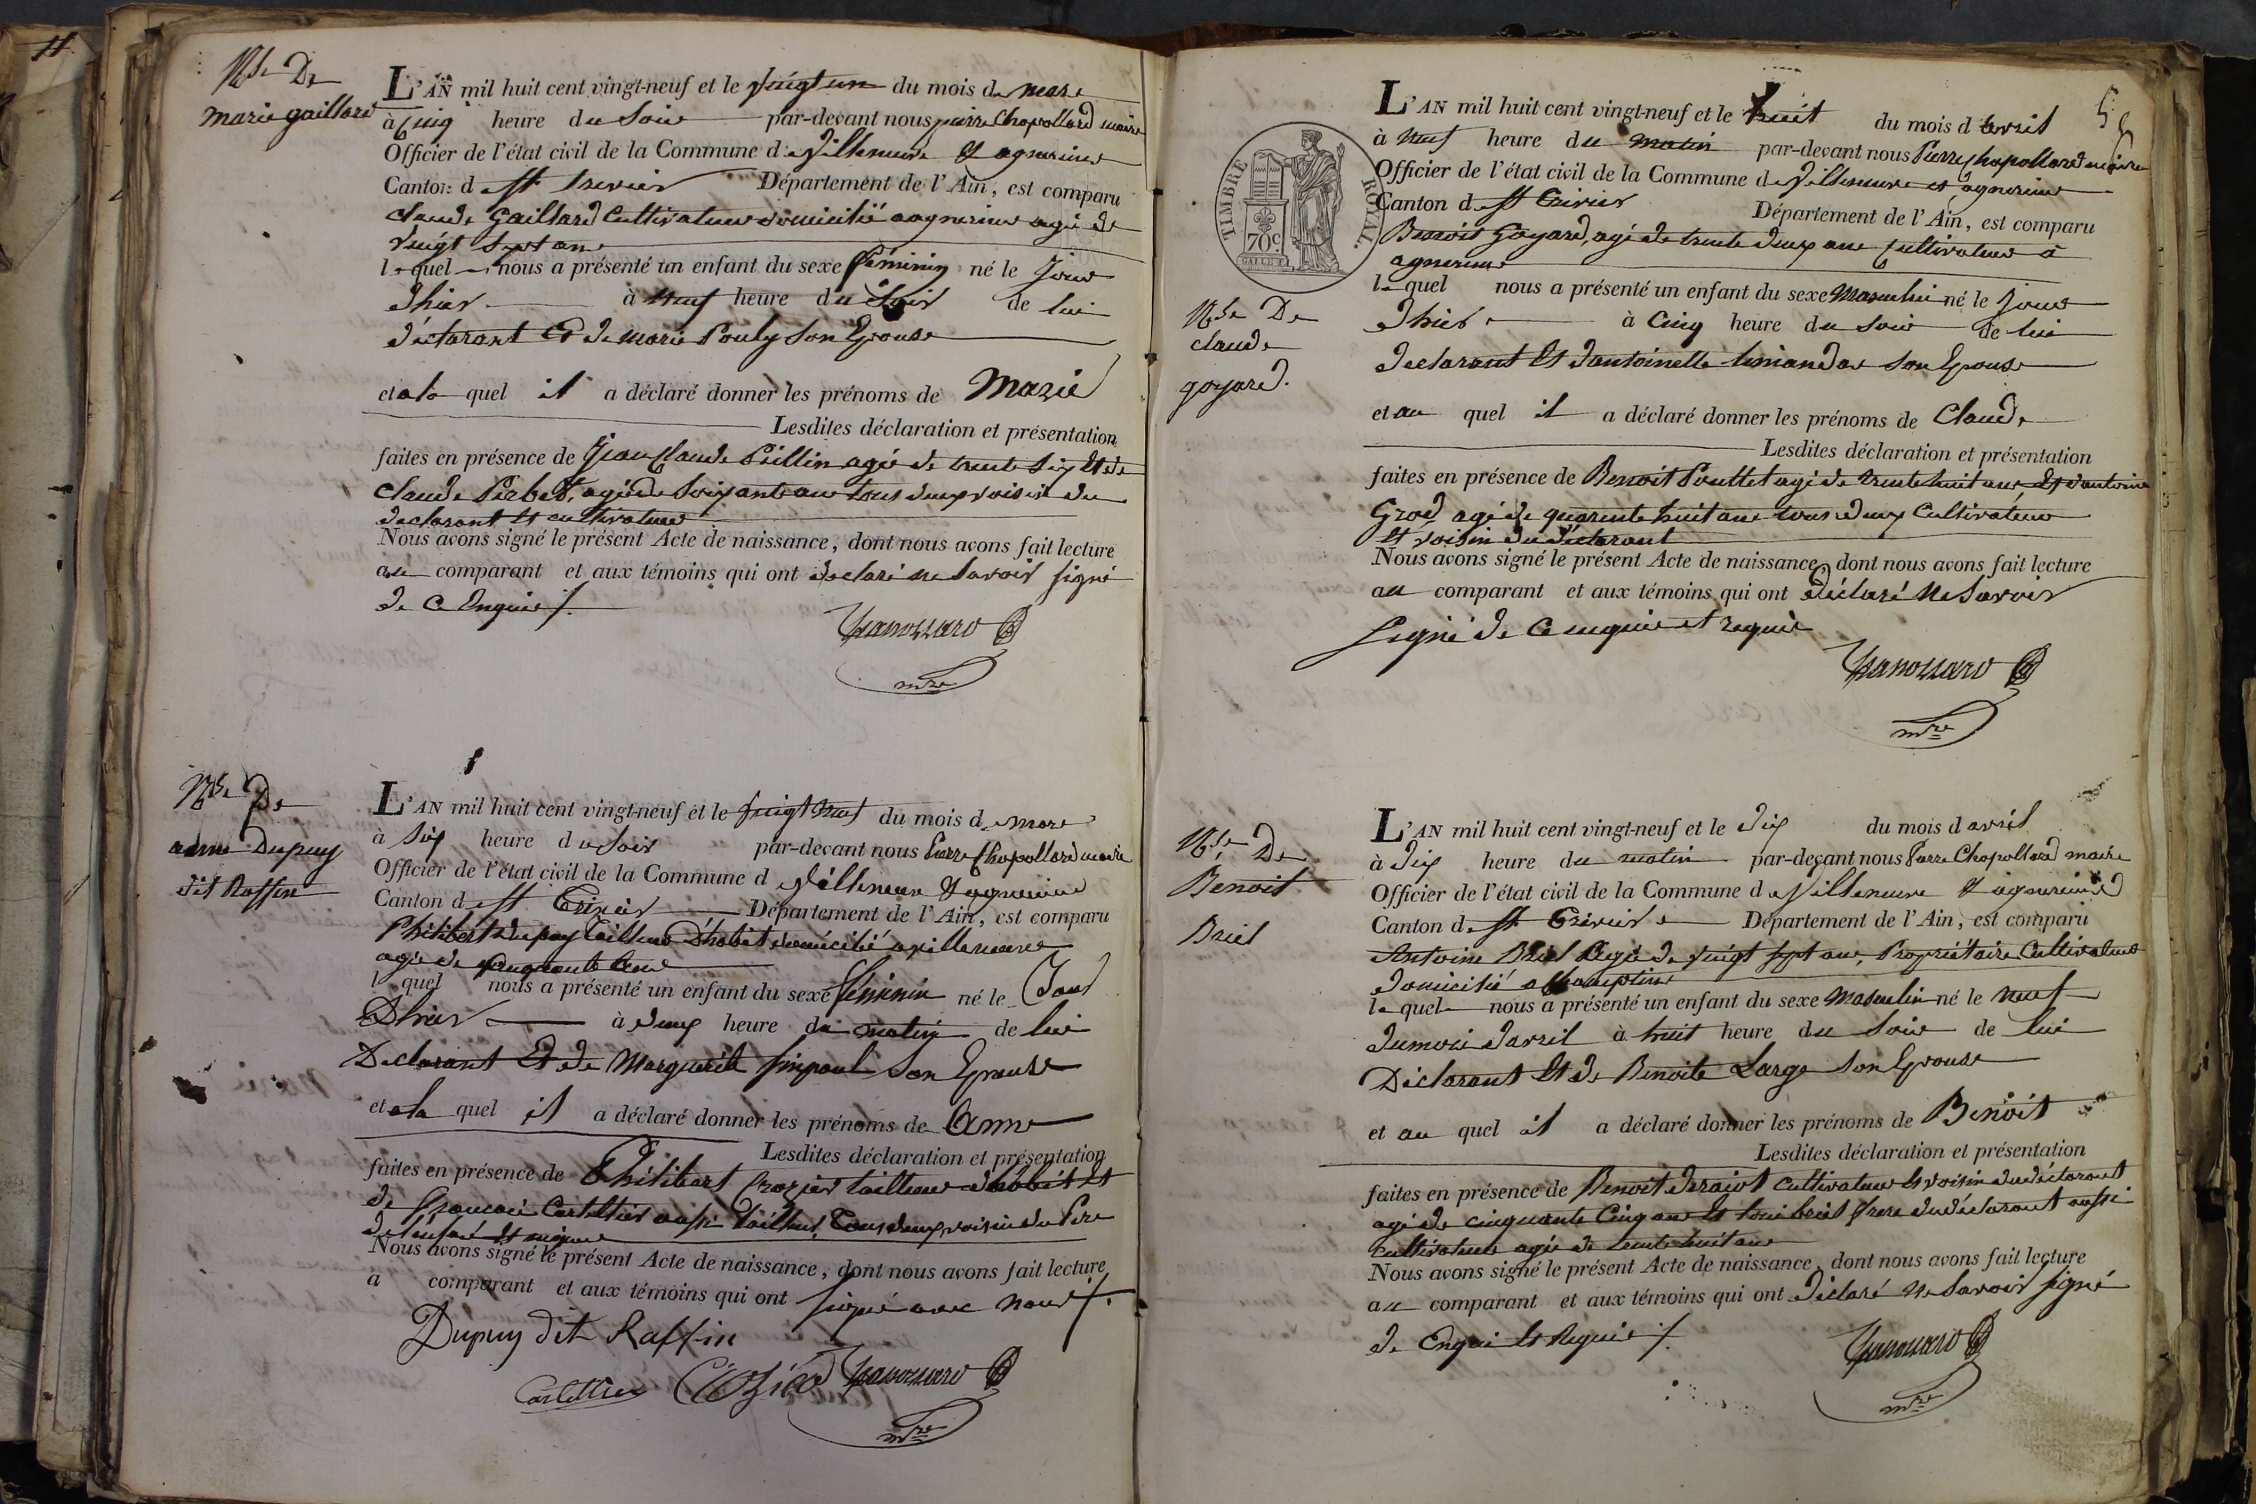 11
Nse De
marie gaillard
L'AN mil huit cent vingt-neuf et le vingt un du mois de mars
à Cinq heure du Soir par-devant nous pierre Chapollard maire
Officier de l'état civil de la Commune de Villeneuve & agnereins
Canton de St trivier Département de l'Ain, est comparu
claude Gaillard Cultivateur domicilié a agnereins agé de
vingt sept ans
lequel nous a présenté un enfant du sexe féminin né le Jour
dhier à neuf heure du Soir de lui
déclarant Et de marie Pouly Son Epouse
et a la quel il a déclaré donner les prénoms de Marie
Lesdites déclaration et présentation
faites en présence de Jean Claude Pillin agé de trente Six Et de
Claude Perbet, agé de Soixante ans tous deux voisin du
declarant Et cultivateur
Nous avons signé le présent Acte de naissance, dont nous avons fait lecture
au comparant et aux témoins qui ont declaré ne Savoir signé
de ce Enquis
mre
Nse De
anne Dupuy
dit Raffin
L'AN mil huit cent vingt-neuf et le vingt neuf du mois de mars
à Six heure du Soir par-devant nous Pierre Chapollard maire
Officier de l'état civil de la Commune de Villeneuve & agnereins
Canton de St Trivier Département de l'Ain, est comparu
Philibert dupuy Tailleur d'habit domicilié a villeneuve
agé de Cinquante ans
lequel nous a présenté un enfant du sexe féminin né le Jour
Dhier à deux heure du matin de lui
Declarant Et de Marguerite Son Epouse
et a la quel il a déclaré donner les prénoms de Anne
Lesdites déclaration et présentation
faites en présence de Philibert Crozier tailleur d'habit Et
de François Cartellier aussi Tailleur, Tous deux voisin du Père
de l'enfant Et majeur
Nous avons signé le présent Acte de naissance, dont nous avons fait lecture
a comparant et aux témoins qui ont signé avec nous
Dupuy dit Raffin
Cartellier Crozier
mre
L'AN mil huit cent vingt-neuf et le huit du mois d avril
à neuf heure du matin par-devant nous Pierre Chapollard maire
Officier de l'état civil de la Commune de Villeneuve et agnereins
Canton de St Trivier Département de l'Ain, est comparu
TIMBRE ROYAL.
70c.
Benoit Goyard, agé de trente deux ans Cultivateur à
agnereins
lequel nous a présenté un enfant du sexe Masculin né le Jour
Nse De
claude
goyard.
dhier à Cinq heure du Soir de lui
declarant Et dantoinette Son Epouse
et au quel il a déclaré donner les prénoms de Claude
Lesdites déclaration et présentation
faites en présence de Benoit Pouttet agé de trente huit ans Et d'antoine
Grod agé de quarente huit ans tous deux Cultivateur
Et voisin du déclarant
Nous avons signé le présent Acte de naissance, dont nous avons fait lecture
au comparant et aux témoins qui ont déclaré Ne Savoir
Signé de ce enquis et requis
mre
Nse De
Benoit
Briel
L'AN mil huit cent vingt-neuf et le dix du mois d avril
à dix heure du matin par-devant nous Pierre Chapollard maire
Officier de l'état civil de la Commune de Villeneuve & agnereins
Canton de St Trivier Département de l'Ain, est comparu
Antoine Briel Agé de vingt sept ans, Propriétaire Cultivateur
domicilié a
lequel nous a présenté un enfant du sexe Masculin né le neuf
dumois davril à huit heure du Soir de lui
Déclarant Et de Benoite Large Son Epouse
et au quel il a déclaré donner les prénoms de Benoit
Lesdites déclaration et présentation
faites en présence de Benoit cultivateur Et voisin du déclarant
agé de cinquante Cinq ans Et Briel frere du déclarant aussi
cultivateur agé de trente huit ans
Nous avons signé le présent Acte de naissance, dont nous avons fait lecture
au comparant et aux témoins qui ont Déclaré Ne Savoir signé
de Enquis Et Requis
mre